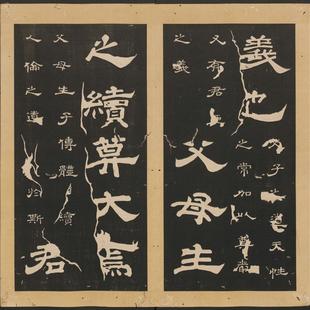 義也
父子之道天性
之常加以尊嚴
又有君
之義
父母生
之續莫大焉
父母生子傳體續
人倫之道於斯
君